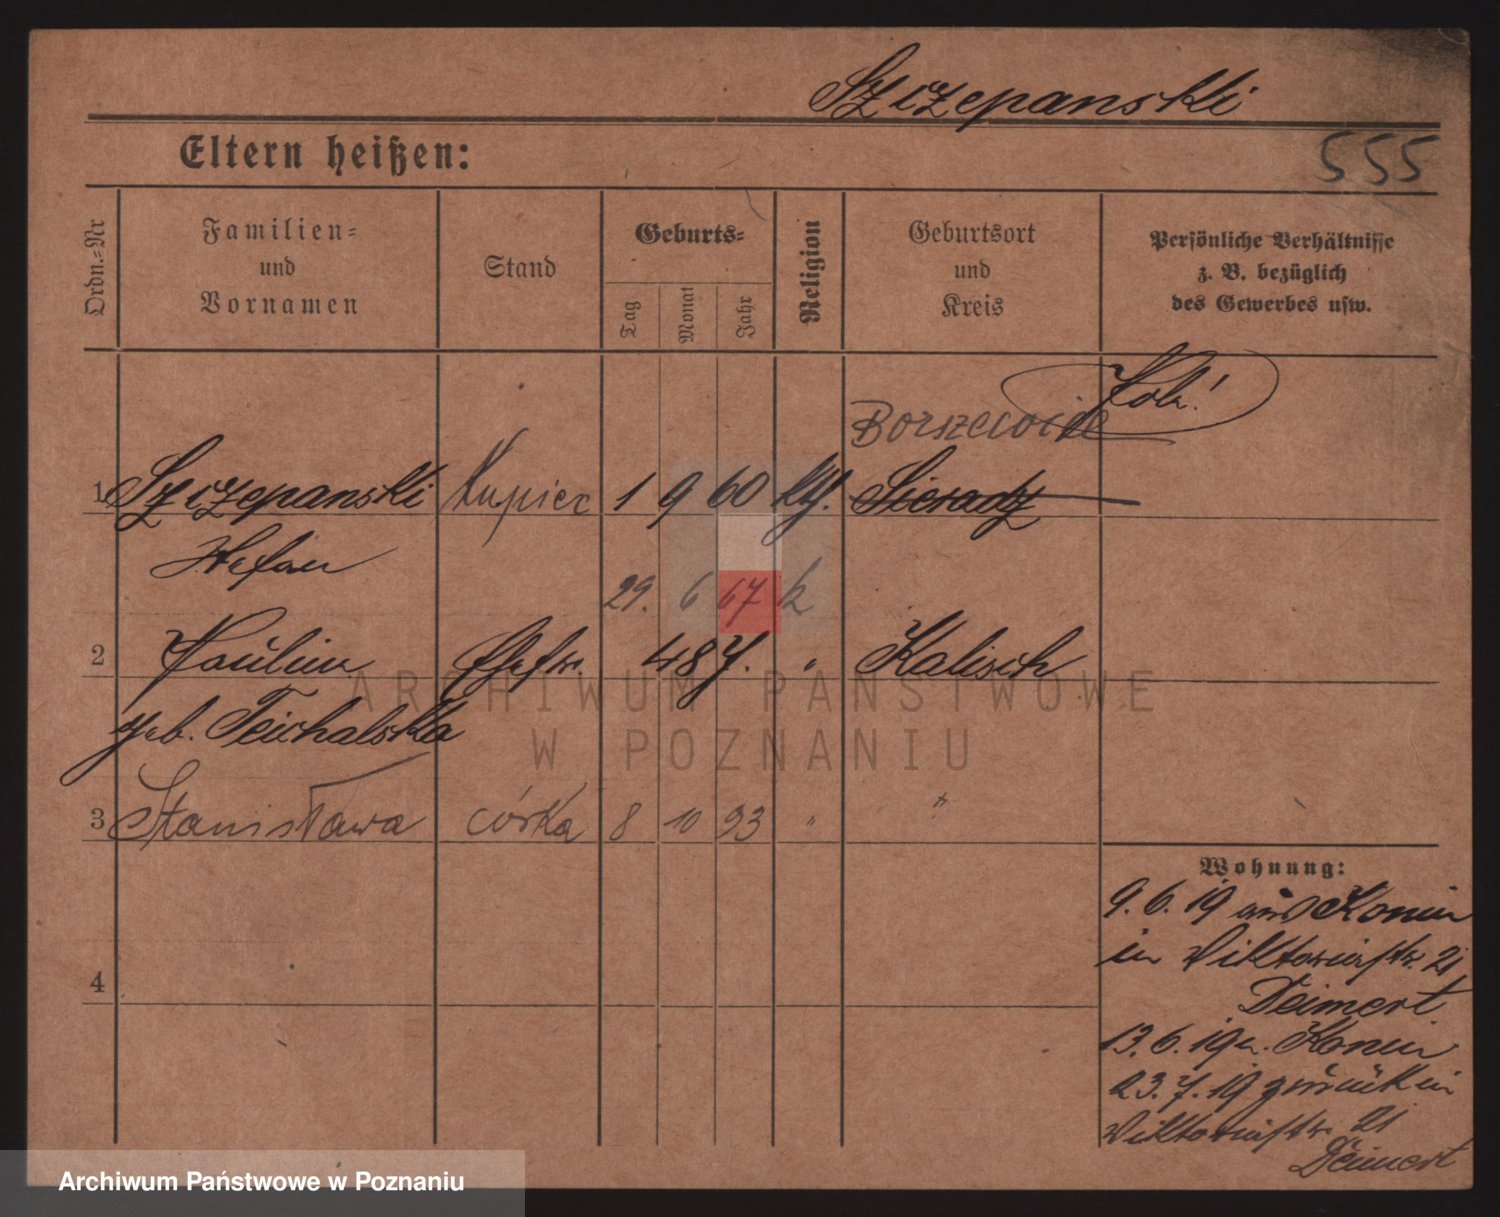 Szczepanski
Eltern heißen:
555
Ordn.-Nr
Familien-
und
Vornamen
Stand
Geburts-
Tag
Monat
Jahr
Religion
Geburtsort
und
Kreis
Persönliche Verhältnisse
z. B. bezüglich
des Gewerbes usw.
1 Szczepanski Kupiec 1 9 60 Sieradz
Stefan
29. 6 67 k
2 Paulina Ehefr. 487. " Kalisch
geb. Teichalska
3 Stanisława córka 8 10 93 " "
4
Wohnung:
9.6.19 aus Konin
in Viktoriastr. 21
Deimert
13.6.19 n. Konin
23.7.19 zurück in
Viktoriastr. 21
Deimert
ARCHIWUM PAŃSTWOWE
W POZNANIU
Archiwum Państwowe w Poznaniu